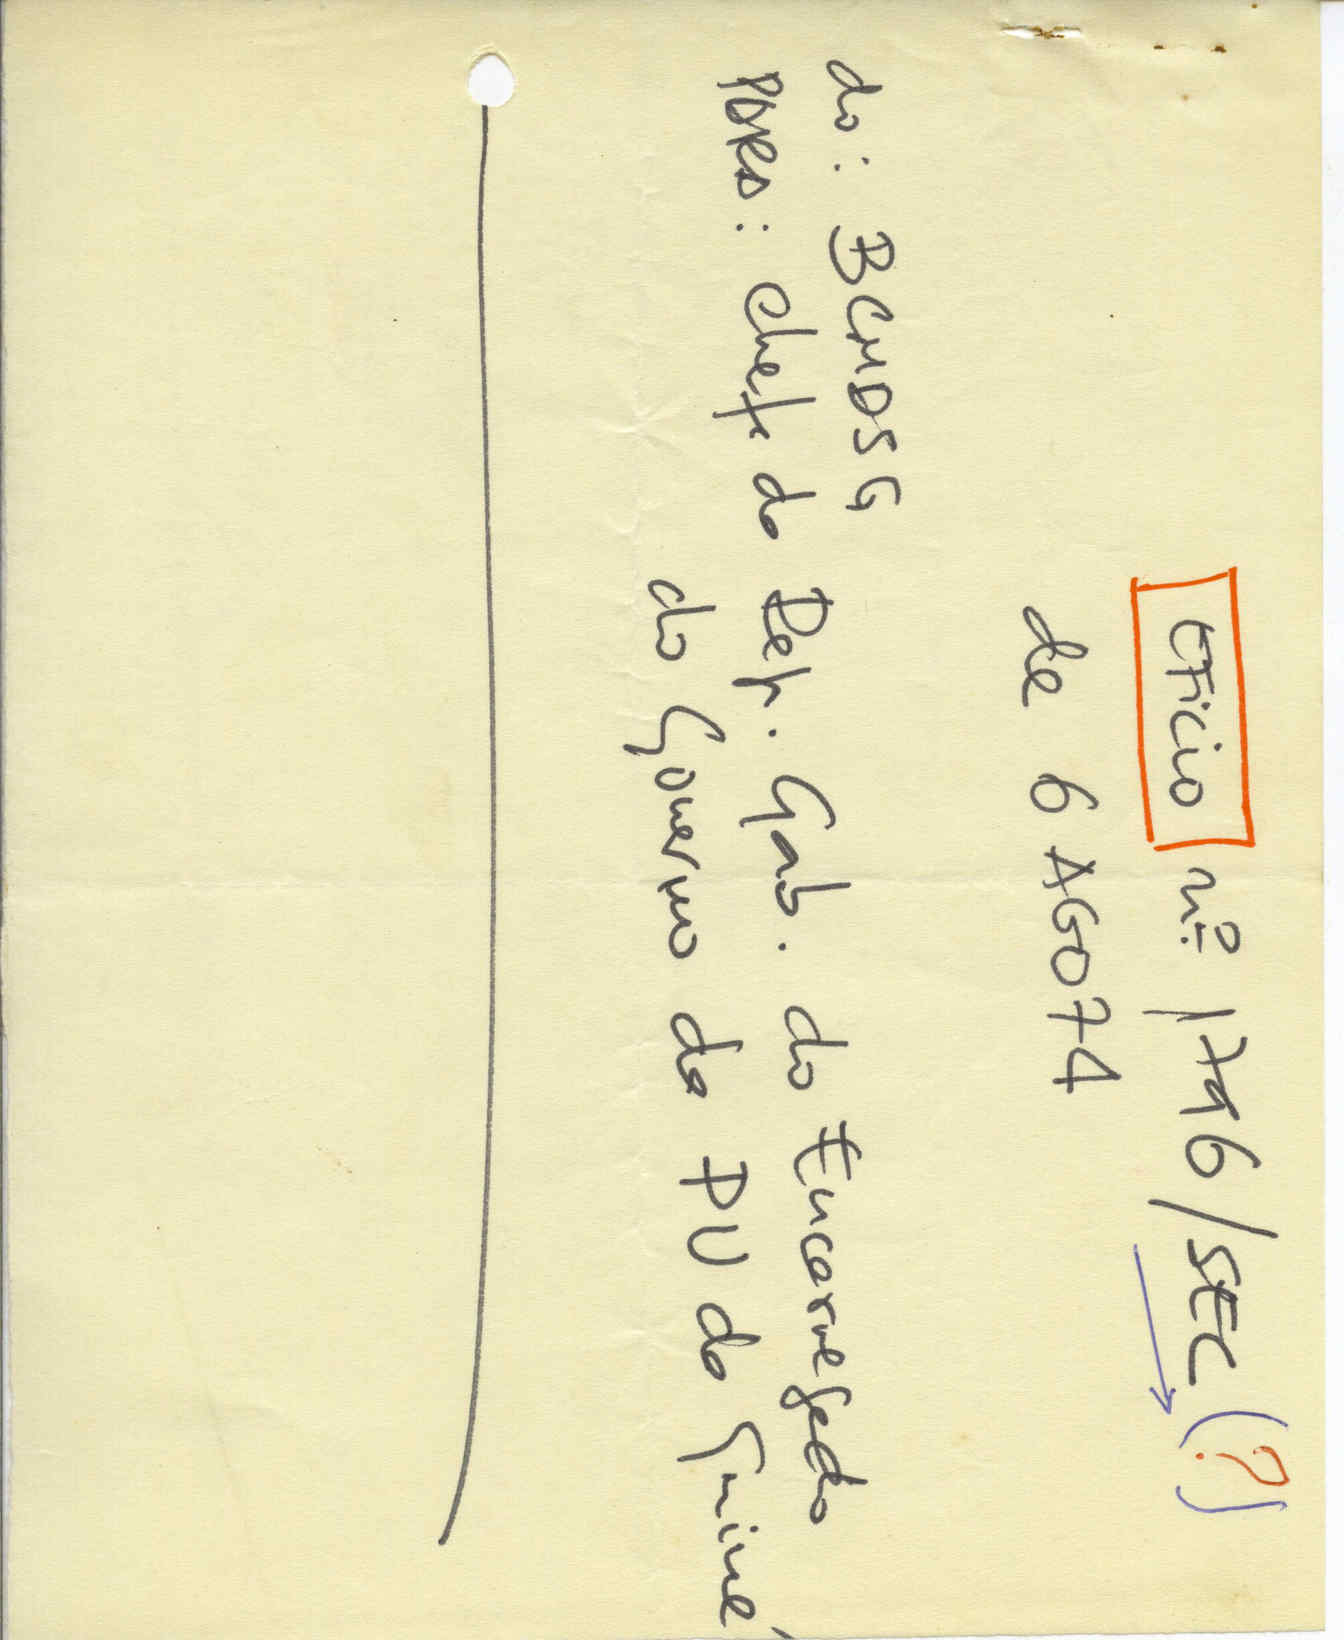 OFÍCIO nº 1796/SEC (?)
de 6 AGO74
do: BCMDSG
PARA: Chefe do Rep. Gab. do Encarregado
do Governo da PU da Guiné